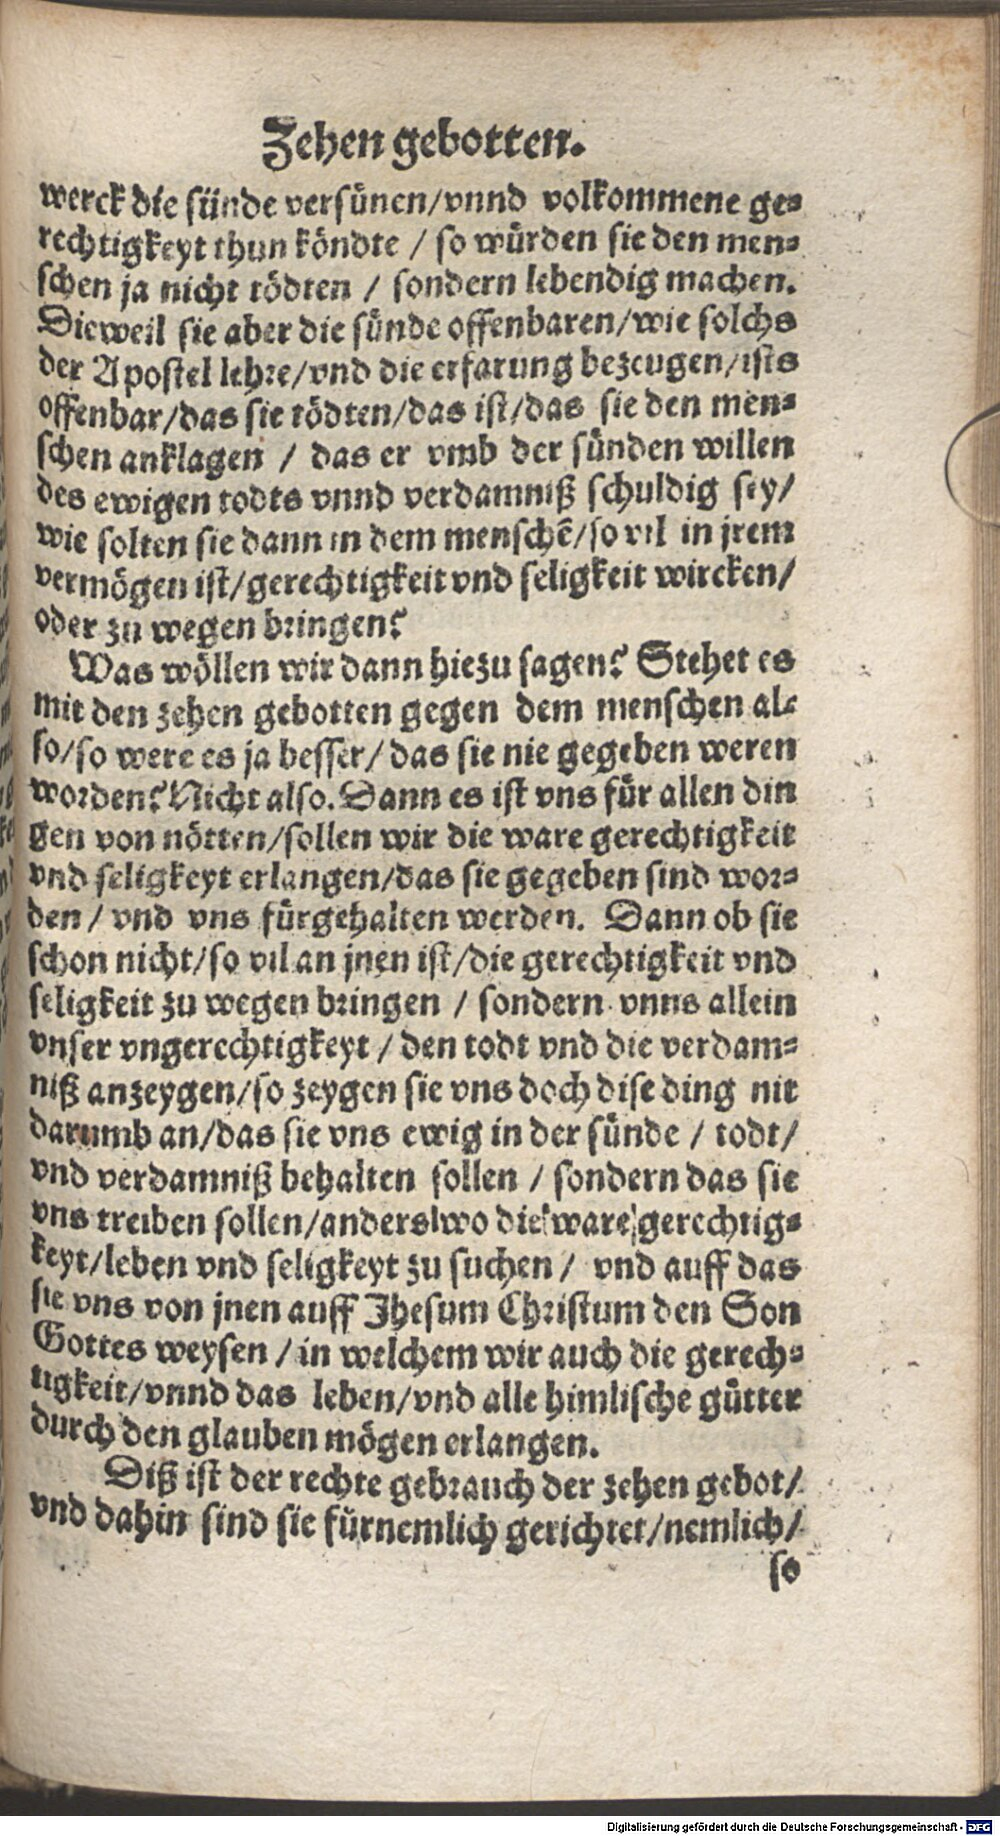 Zehen gebotten.
werck die sünde versünen/vnnd volkommene ge-
rechtigkeyt thun köndte / so würden sie den men-
schen ja nicht tödten / sondern lebendig machen.
Dieweil sie aber die sünde offenbaren/wie solchs
der Apostel lehre/vnd die erfarung bezeugen/ists
offenbar/das sie tödten/das ist/das sie den men-
schen anklagen / das er vmb der sünden willen
des ewigen todts vnnd verdamniß schuldig sey/
wie solten sie dann in dem menschē/so vil in jrem
vermögen ist/gerechtigkeit vnd seligkeit wircken/
oder zu wegen bringen?
Was wöllen wir dann hiezu sagen? Stehet es
mit den zehen gebotten gegen dem menschen al-
so/so were es ja besser/das sie nie gegeben weren
worden? Nicht also. Dann es ist vns für allen din
gen von nötten/sollen wir die ware gerechtigkeit
vnd seligkeyt erlangen/das sie gegeben sind wor-
den / vnd vns fürgehalten werden. Dann ob sie
schon nicht/so vil an jnen ist/die gerechtigkeit vnd
seligkeit zu wegen bringen / sondern vnns allein
vnser vngerechtigkeyt / den todt vnd die verdam-
niß anzeygen/so zeygen sie vns doch dise ding nit
darumb an/das sie vns ewig in der sünde / todt/
vnd verdamniß behalten sollen / sondern das sie
vns treiben sollen/anderswo die ware gerechtig-
keyt/leben vnd seligkeyt zu suchen / vnd auff das
sie vns von jnen auff Jhesum Christum den Son
Gottes weysen / in welchem wir auch die gerech-
tigkeit/vnnd das leben/vnd alle himlische gütter
durch den glauben mögen erlangen.
Diß ist der rechte gebrauch der zehen gebot/
vnd dahin sind sie fürnemlich gerichtet/nemlich/
so
Digitalisierung gefördert durch die Deutsche Forschungsgemeinschaft - DFG